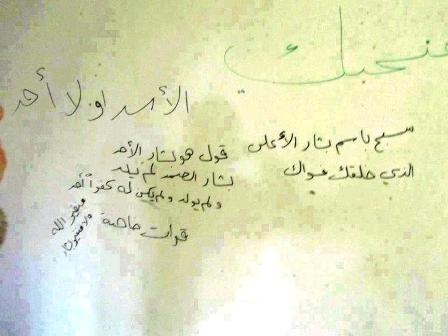 منحبك
الأسد او لا أحد
سبح باسم بشار الأعلى
الذي خلقك فسواك
قول هو بشار الأحد
بشار الصمد لم يلد
ولم يولد ولم يكن له كفوا أحد
قوات خاصة
الله